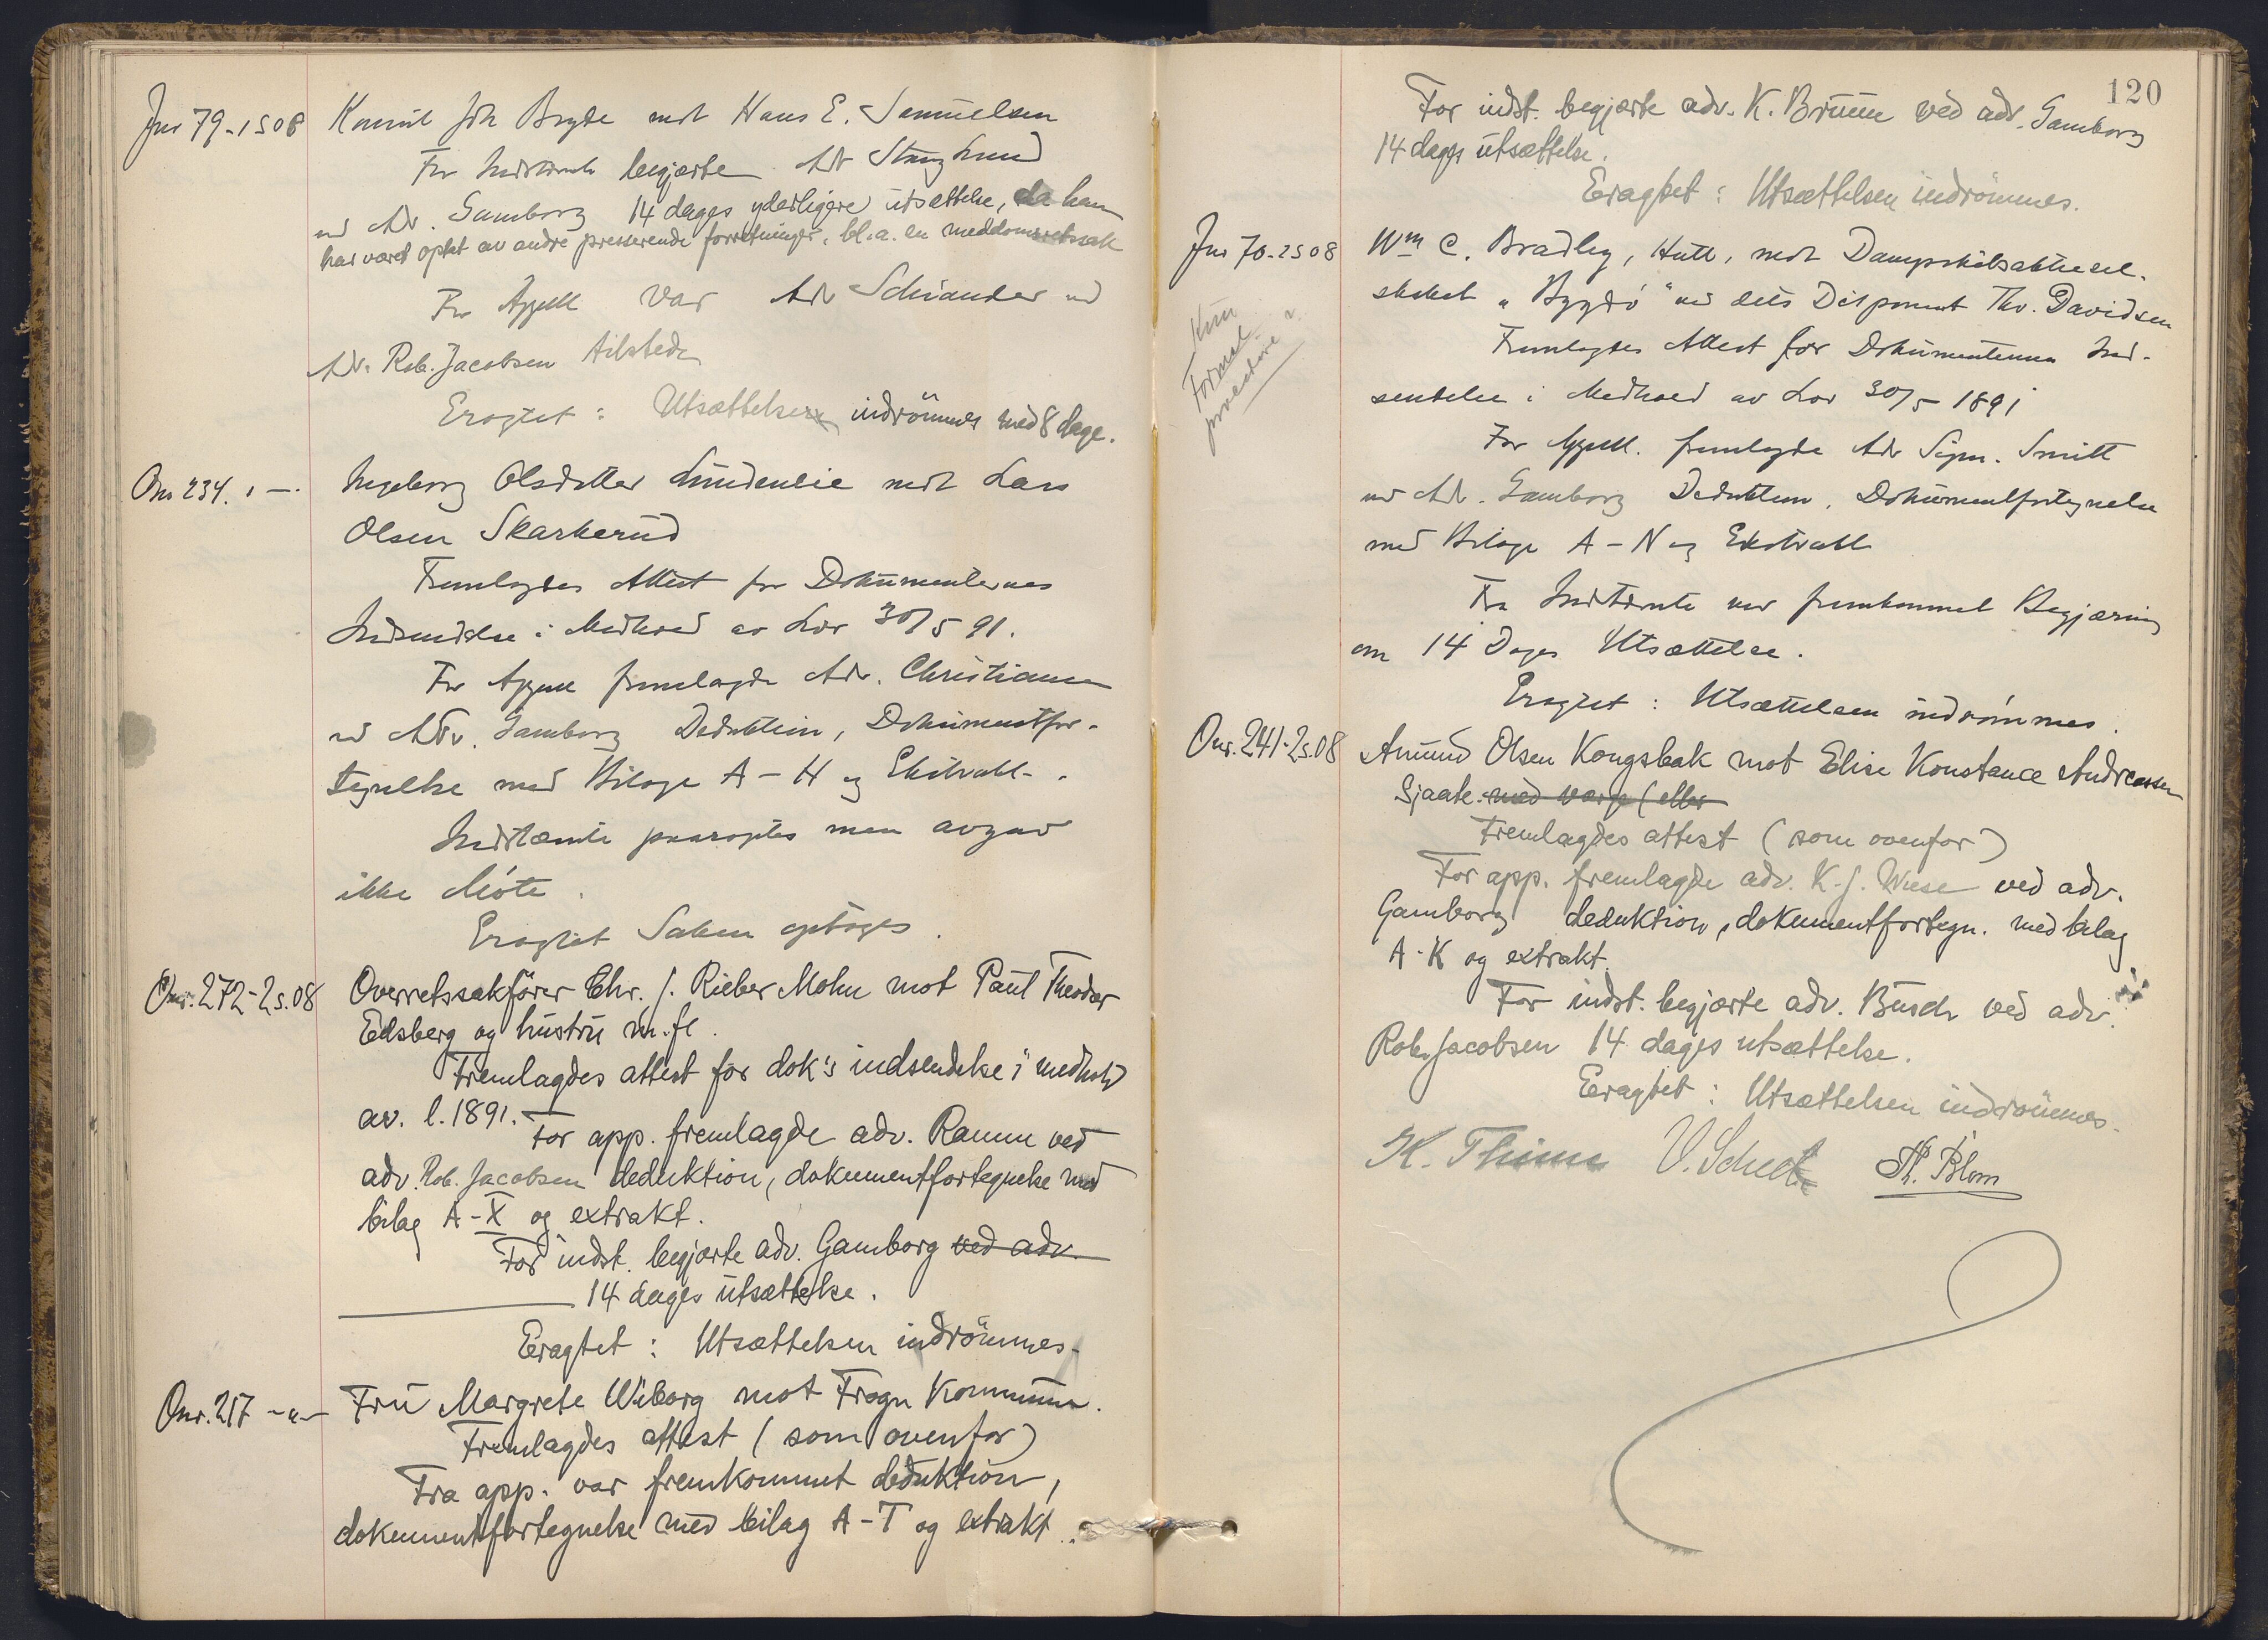 Jnr 79-1s08 Konsul Joh Bryde mot Hans E. Samuelsen
For Indstevnte begjærte Adv Stang Lund
ved Adv. Gamborg 14 dages yderligere utsættelse, da han
har været optat av andre presserende forretninger, bl.a. en meddomsretssak
For Appell var Adv Schiander ved
Adv. Rob. Jacobsen tilstede
Eragtet: Utsættelsen indrömmes med 8 dage.
Onr 234. 1 — Ingeborg Olsdatter Lundenlie mot Lars
Olsen Skarkerud
Fremlagdes Attest for Dokumenternes
Indsendelse i Medhold av Lov 30/5 91.
For Appell fremlagde Adv. Christiansen
ved Adv. Gamborg Deduktion, Dokumentfor-
tegnelse med Bilage A-H og Ekstrakt.
Indstævnte paaroptes men avgav
ikke Møte.
Eragtet Saken optages.
Onr. 272-2s.08 Overretssakfører Chr. J. Rieber Mohn mot Paul Theodor
Edsberg og hustru m. fl.
Fremlagdes attest for dok's indsendelse i medhold
av. l. 1891.
For app. fremlagde adv. Ramm ved
adv. Rob. Jacobsen deduktion, dokumentfortegnelse med
bilag A-X og extrakt.
For indst. begjærte adv. Gamborg ved adv.
14 dages utsættelse.
Eragtet: Utsættelsen indrömmes.
Onr. 217 -"- Fru Margrete Wiborg mot Frogn Kommune.
Fremlagdes attest (som ovenfor)
Fra app. var fremkommet deduktion,
dokumentfortegnelse med bilag A-T og extrakt.
120
For indst. begjærte adv. K. Bruun ved adv. Gamborg
14 dages utsættelse.
Eragtet: Utsættelsen indrömmes.
Jnr 70-2s08 Wm C. Bradley, Hull, mot Dampskibsaktiesel-
skabet "Bygdö" ved dets Disponent Thv. Davidsen
Kun
Formal
procedure
Fremlagdes Attest for Dokumenternes Ind-
sendelse i Medhold av Lov 30/5 1891
For Appell. fremlagde Adv Sigm. Smitt
ved Adv. Gamborg Deduktion, Dokumentfortegnelse
med Bilage A-N og Ekstrakt
Fra Indstevnte var fremkommet Begjæring
om 14 Dages Utsættelse.
Eragtet: Utsættelsen indrømmes.
Onr. 241-2s.08 Amund Olsen Kongsbak mot Elise Konstance Andreassen
Sjaate. med værge (eller
Fremlagdes attest (som ovenfor)
For app. fremlagde adv. K. J. Wiese ved adv.
Gamborg deduktion, dokumentfortegn. med bilag
A-K og extrakt.
For indst. begjærte adv. Busch ved adv.
Rob. Jacobsen 14 dages utsættelse.
Eragtet: Utsættelsen indrömmes.
K. Thinn V. Scheel Th. Blom